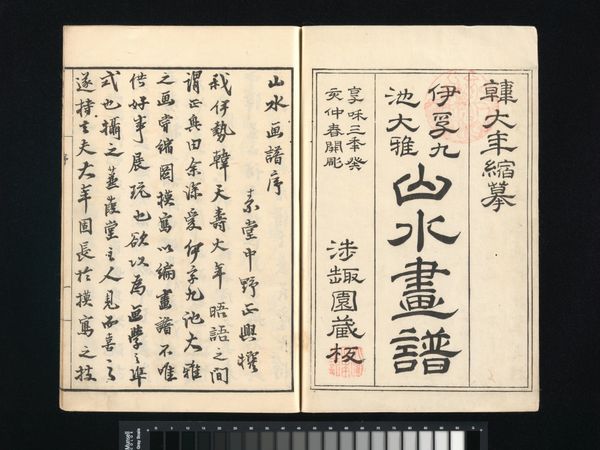 韓大年縮摹
伊孚九
池大雅
山水畫譜
享咊三年癸
亥仲春開彫
涉趣園藏板
山水画譜序
素堂中野正興撰
我伊勢韓天壽大年晤語之間
謂正興曰余深愛伊孚九池大雅
之画嘗縮圖摸寫以編畫譜不唯
供好事展玩也欲以為画學之準
式也攝之蒹葭堂主人見而喜之
遂持去夫大年固長於摸寫之技